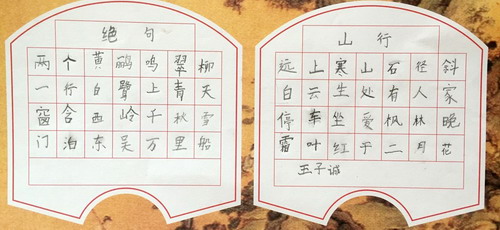 绝句
两个黄鹂鸣翠柳
一行白鹭上青天
窗含西岭千秋雪
门泊东吴万里船
山行
远上寒山石径斜
白云生处有人家
停车坐爱枫林晚
霜叶红于二月花
王子诚